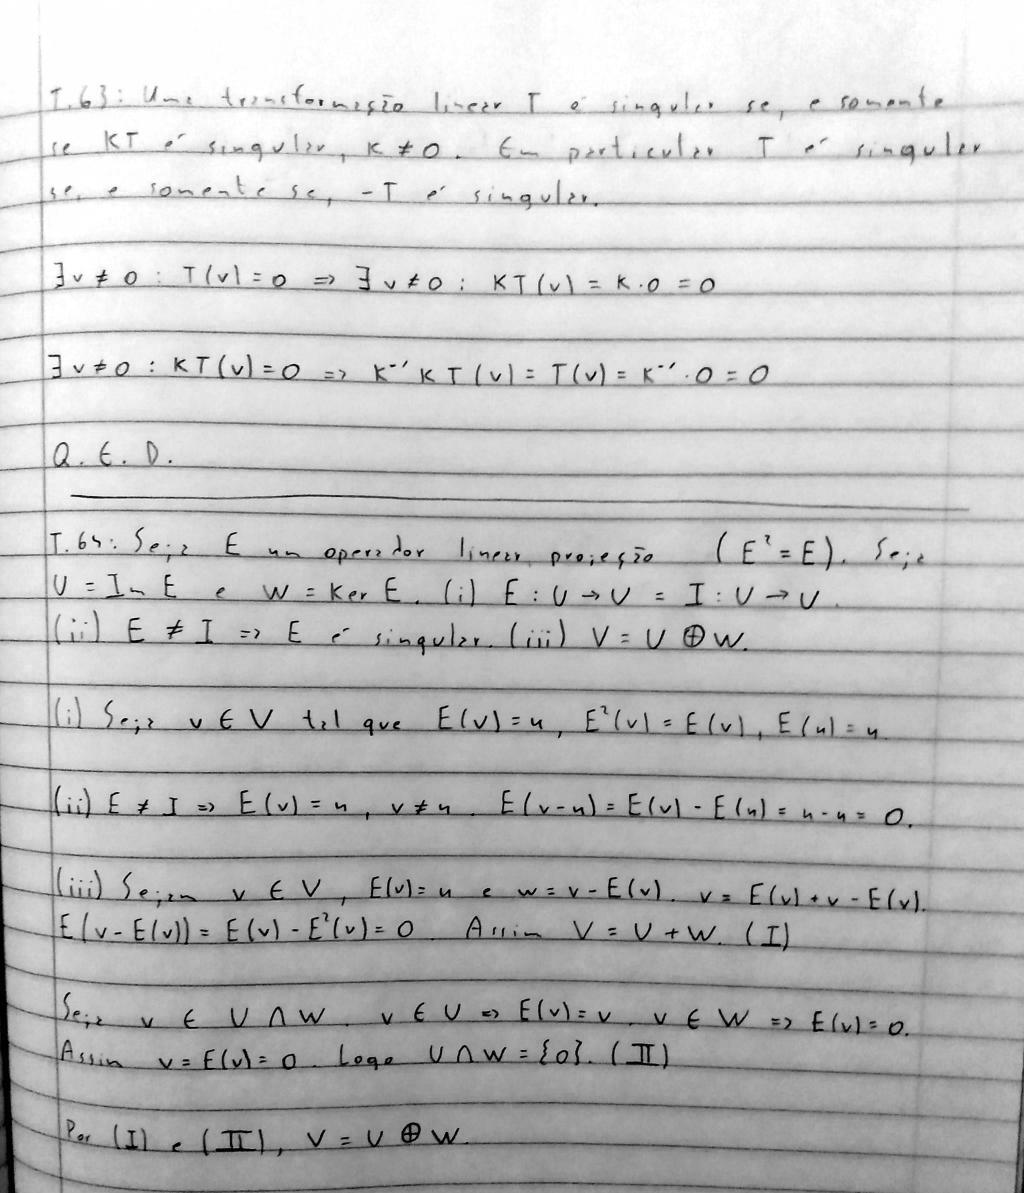 T.63: Uma transformação linear T é singular se, e somente
se KT é singular, K ≠ 0. Em particular T é singular
se, e somente se, -T é singular.
∃v ≠ 0 : T(v) = 0 => ∃ v ≠ 0 : KT(v) = K·0 = 0
∃v ≠ 0 : KT(v) = 0 => K⁻¹KT(v) = T(v) = K⁻¹·0 = 0
Q.E.D.
T.64: Seja E um operador linear projeção (E² = E). Seja
U = Im E e W = Ker E. (i) E : U → U = I : U → U.
(ii) E ≠ I => E é singular. (iii) V = U ⊕ W.
(i) Seja v ∈ V tal que E(v) = u, E²(v) = E(v), E(u) = u.
(ii) E ≠ I => E(v) = u, v ≠ u. E(v-u) = E(v) - E(u) = u - u = 0.
(iii) Sejam v ∈ V, E(v) = u e w = v - E(v). v = E(v) + v - E(v).
E(v - E(v)) = E(v) - E²(v) = 0. Assim V = U + W. (I)
Seja v ∈ U ∩ W. v ∈ U => E(v) = v. v ∈ W => E(v) = 0.
Assim v = E(v) = 0. Logo U ∩ W = {0}. (II)
Por (I) e (II), V = U ⊕ W.